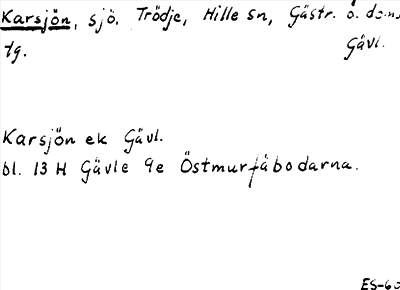 Karsjön, sjö. Trödje, Hille sn, Gästr. ö. doms
tg. Gävl.
Karsjön ek Gävl.
bl. 13 H Gävle 9e Östmurfäbodarna.
ES-60